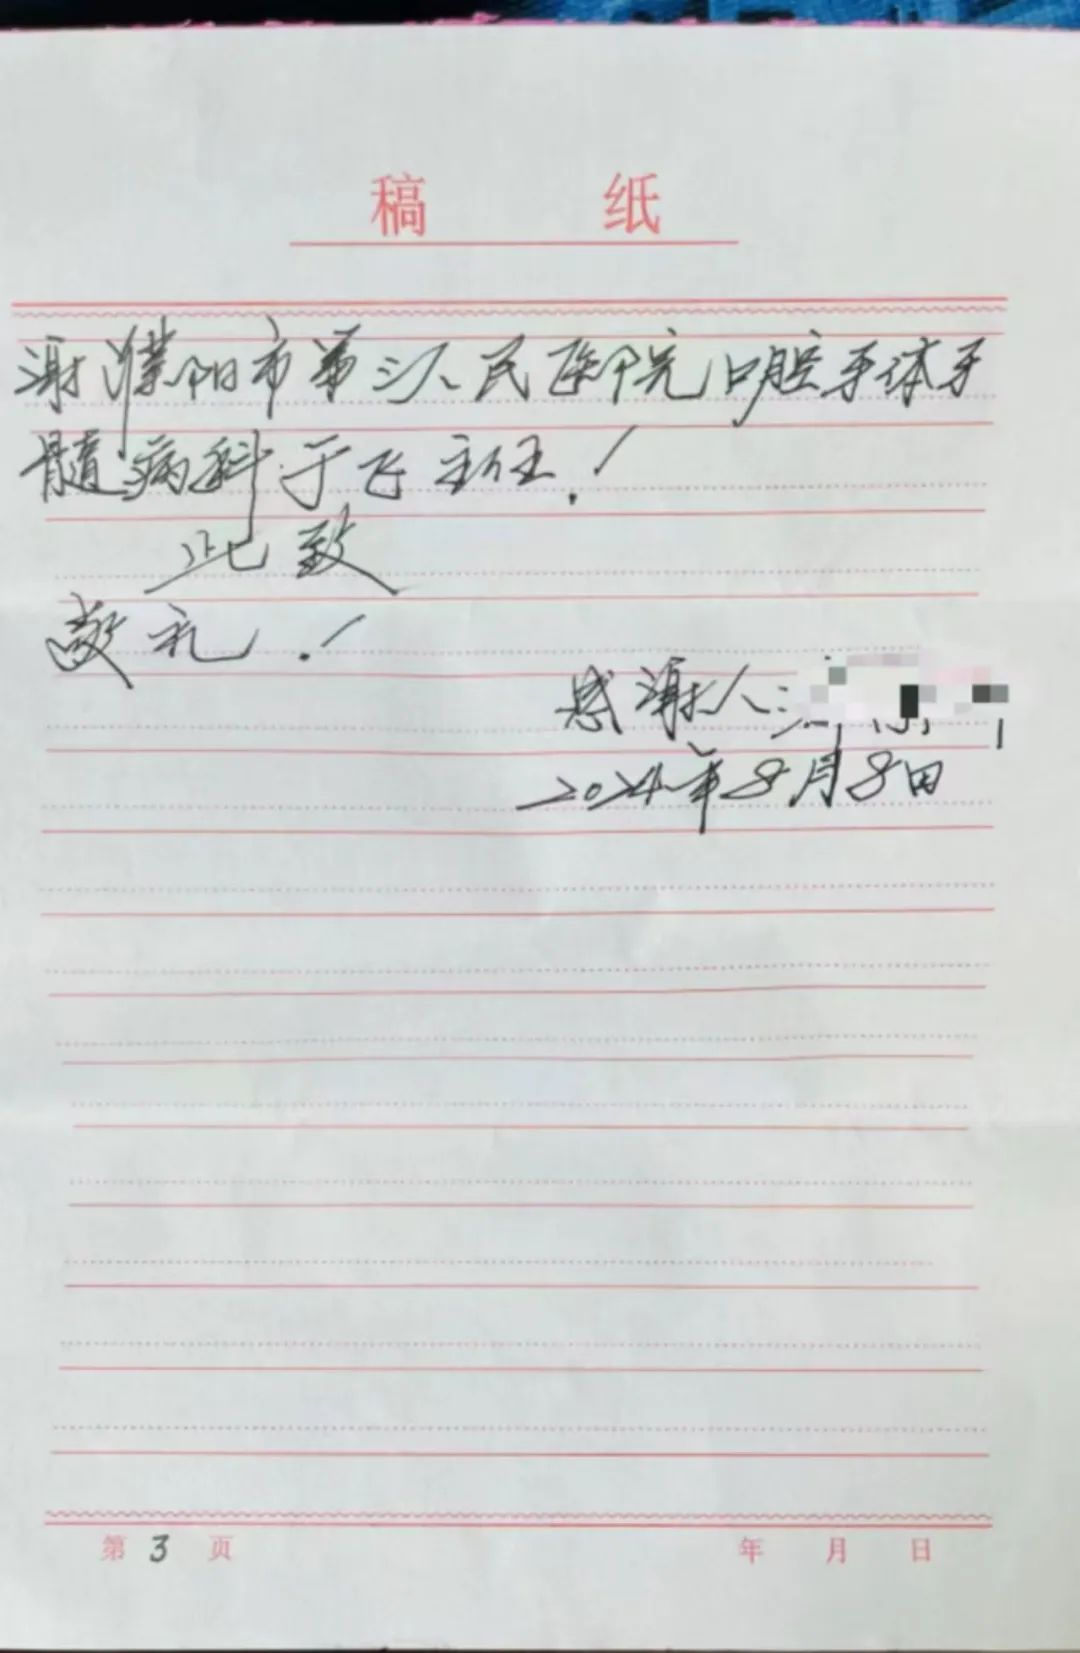 稿 纸
谢濮阳市第三人民医院口腔牙体牙
髓病科于飞主任!
此致
敬礼!
感谢人:
2024年8月8日
第3页 年 月 日